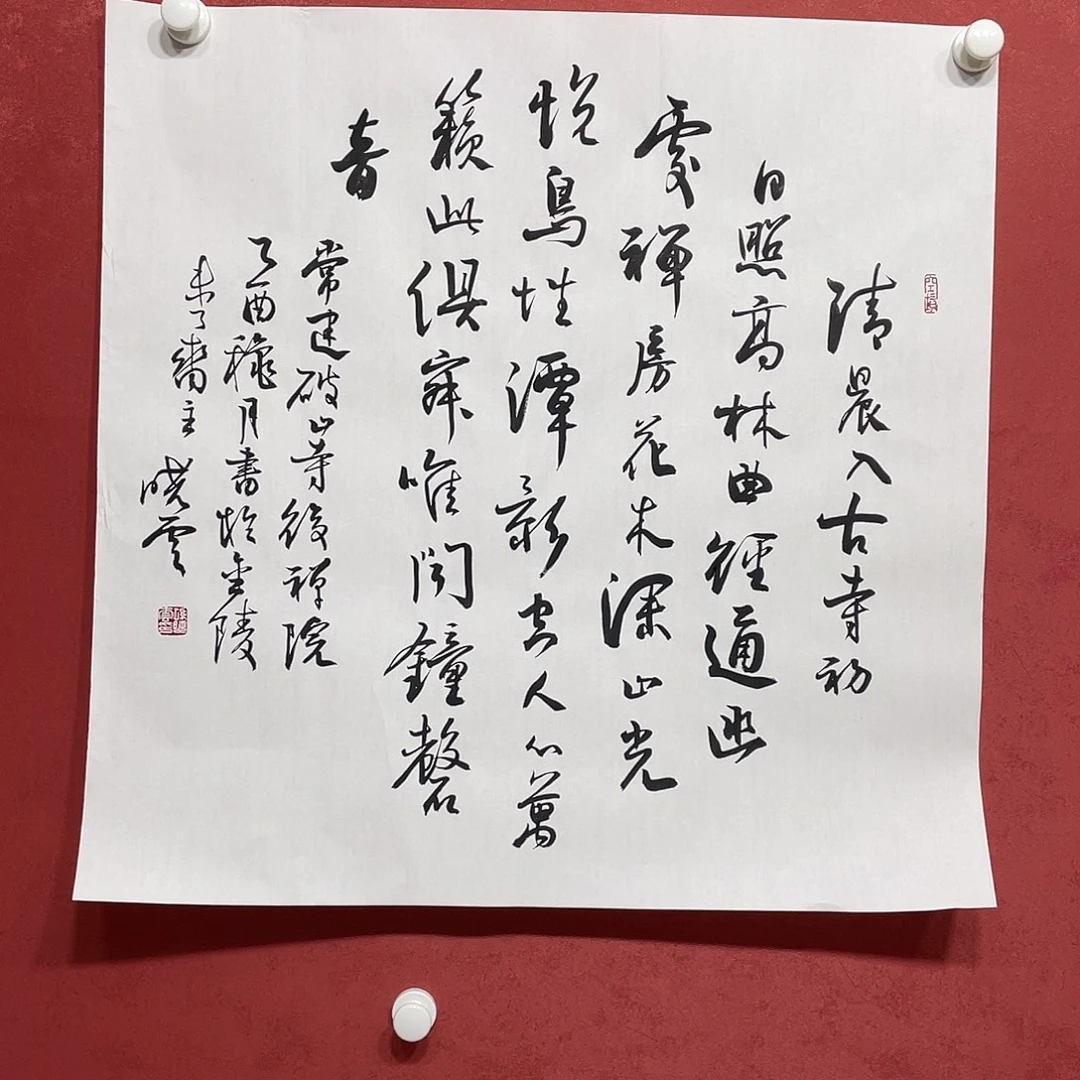 清晨入古寺初
日照高林曲徑通幽
處禪房花木深山光
悅鳥性潭影空人心萬
籟此俱寂唯聞鐘磬
音
常建破山寺後禪院
乙酉穐月書於金陵
未了齋主 晓雲